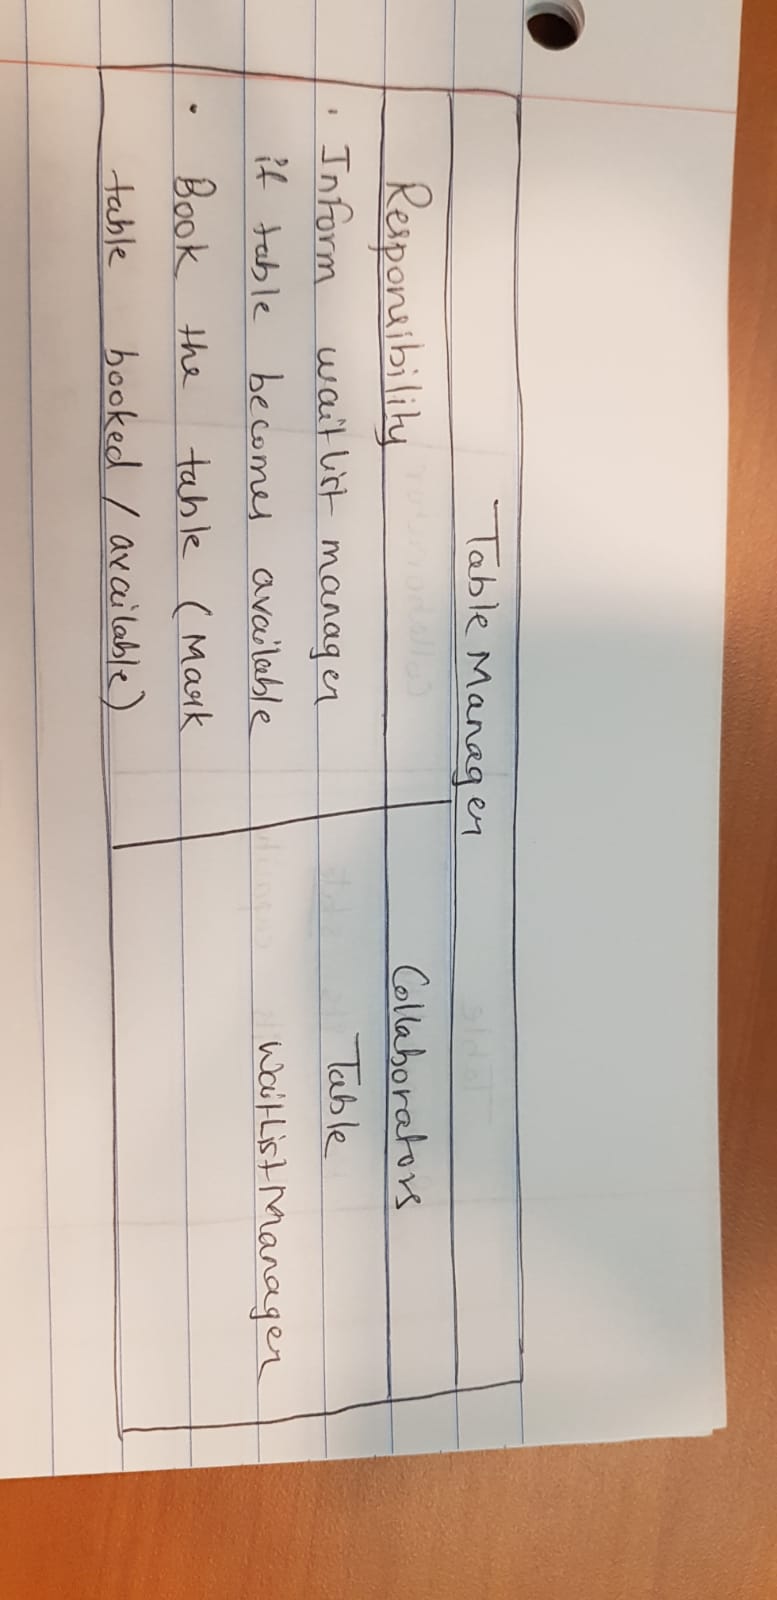 Table Manager
Responsibility
Collaborators
· Inform waitlist manager
if table becomes available
· Book the table (Mark
table booked / available)
Table
WaitListManager